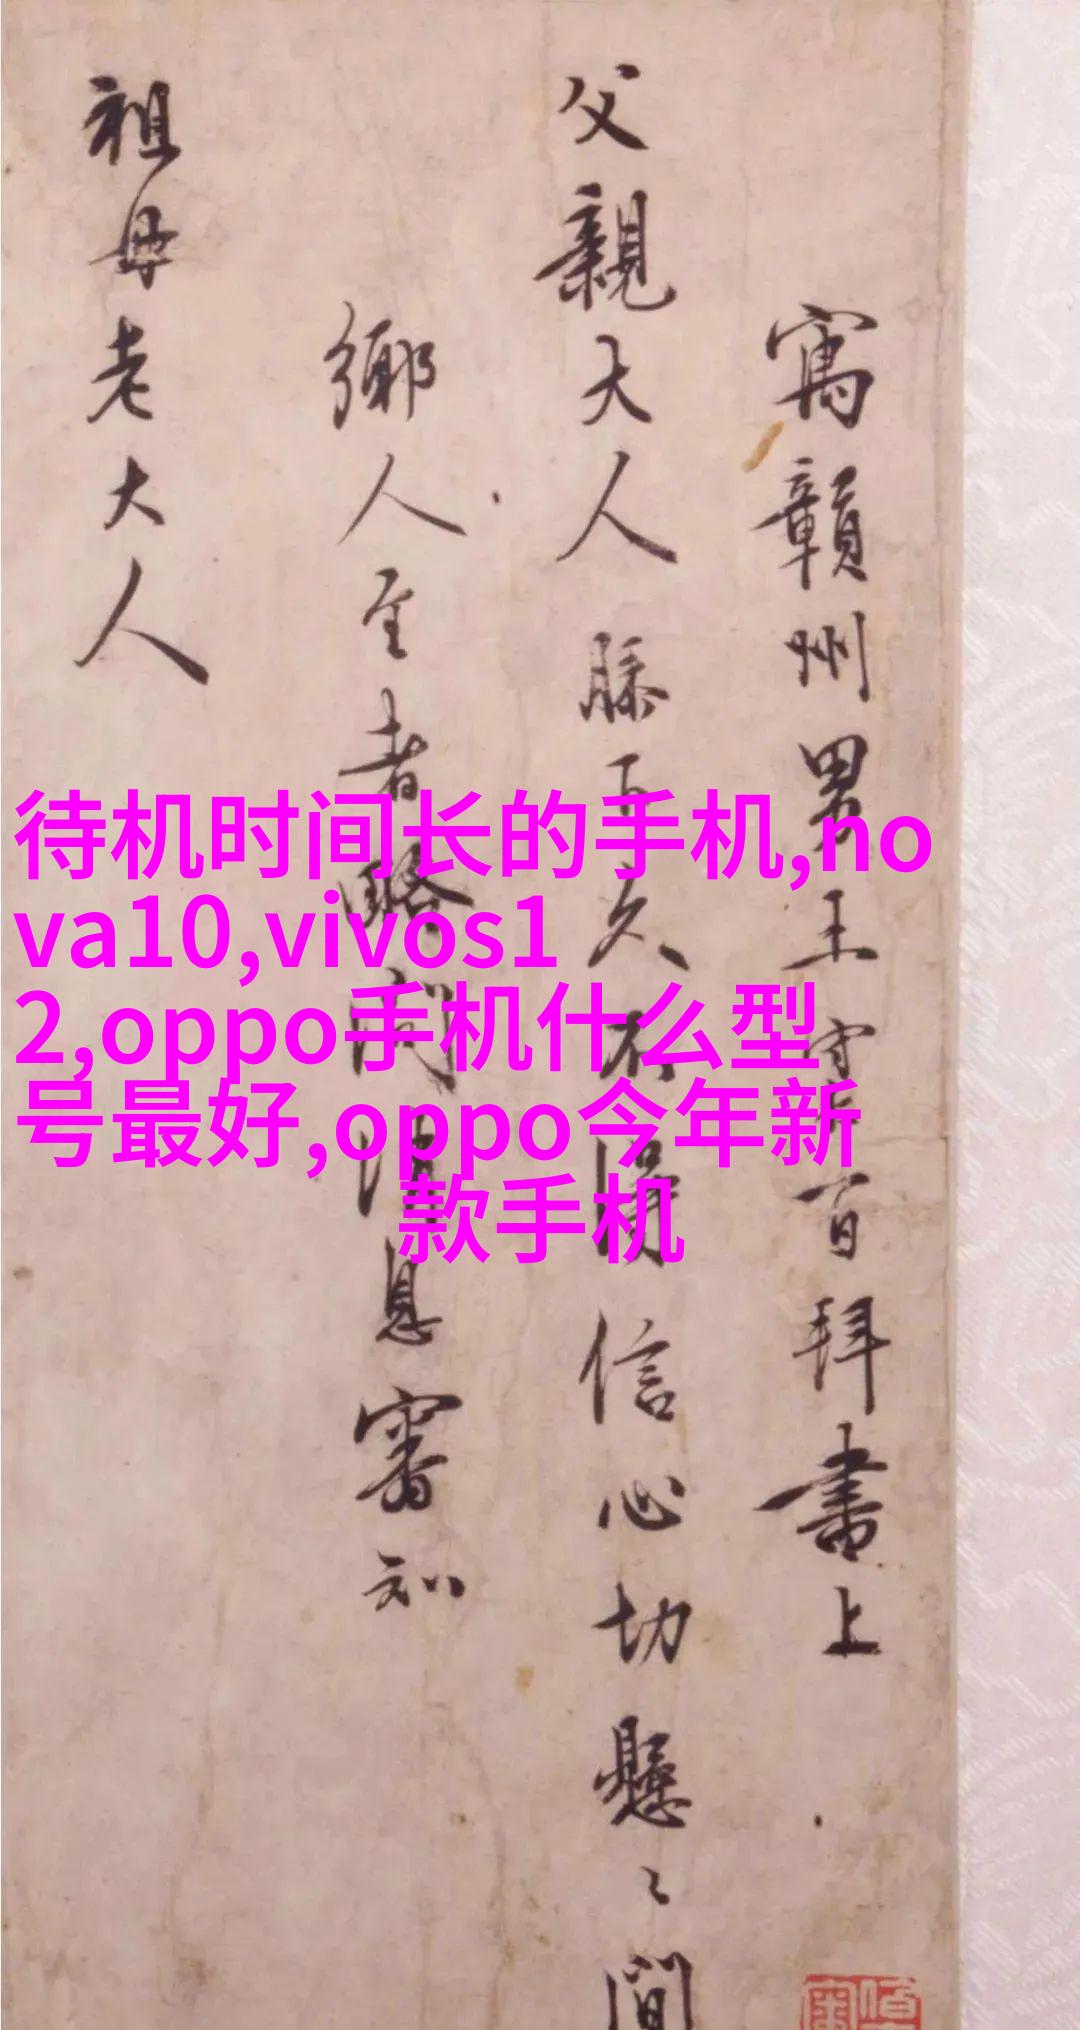 寓贛州男王守仁百拜書上
父親大人膝下久不得信心切懸〻間
鄉人至者略聞消息審知
祖母老大人
待机时间长的手机,no
va10,vivos1
2,oppo手机什么型
号最好,oppo今年新
款手机